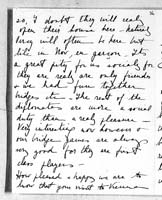 so, I doubt they will really
open their house here - naturally
they will often be here but
little in  in person. It's
a great pity for us socially for
they are really our only friends
we had fun together
. The rest of the
diplomats are more a social
duty than a real pleasure -
Very interesting now however &
our bridge games are always
very good for they are first
class players -
How pleased & happy we are to
know that you went to Vienna